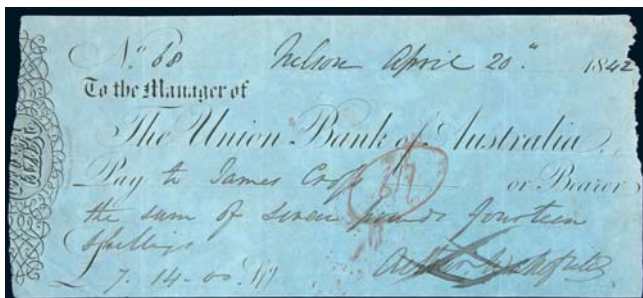 No. 68 Nelson April 20" 1842
To the Manager of
The Union Bank of Australia
Pay to James Cross or Bearer
the sum of seven pounds fourteen
shillings
£ 7. 14-00
Arthur Wakefield